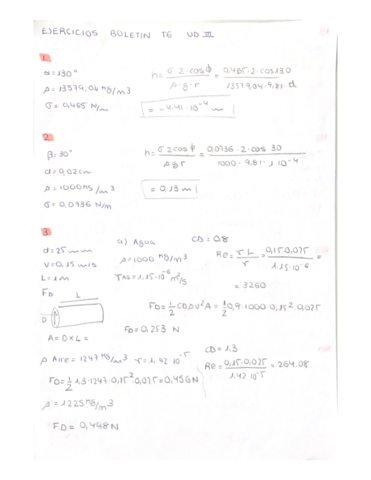 EJERCICIOS BOLETIN T6 UD.III
1.
α=130°
ρ=13579,04 kg/m3
σ=0,465 N/m
h= σ 2·cosϕ / ρ·g·r = 0,465·2·cos130 / 13579,04·9,81·
= -4,41·10^-4 m
2.
β=30°
d=0,02cm
ρ=1000 kg/m3
σ=0,0736 N/m
h= σ 2cosϕ / ρgr = 0,0736·2·cos 30 / 1000·9,81·1·10^-4
= 0,13 m
3
d=25mm
V=0,15 m/s
L=1m
a) Agua
ρ=1000 kg/m3
CD=0.8
Re= = 0,15·0,025 / 1.15·10^-6 =
= 3260
FD
L
D
A=D×L=
FD=1/2 CDρV²A = 1/2 0,9·1000·0,15²·0,025
FD=0.253 N
ρ Aire=1247 kg/m3 r=1,42·10^-5
CD=1.3
Re= 0,15·0,025 / 1.42·10^-5 = 264.08
FD=1/2 1,3·1247·0,15²·0,025=0,456N
ρ=1225 kg/m3
FD=0,448N